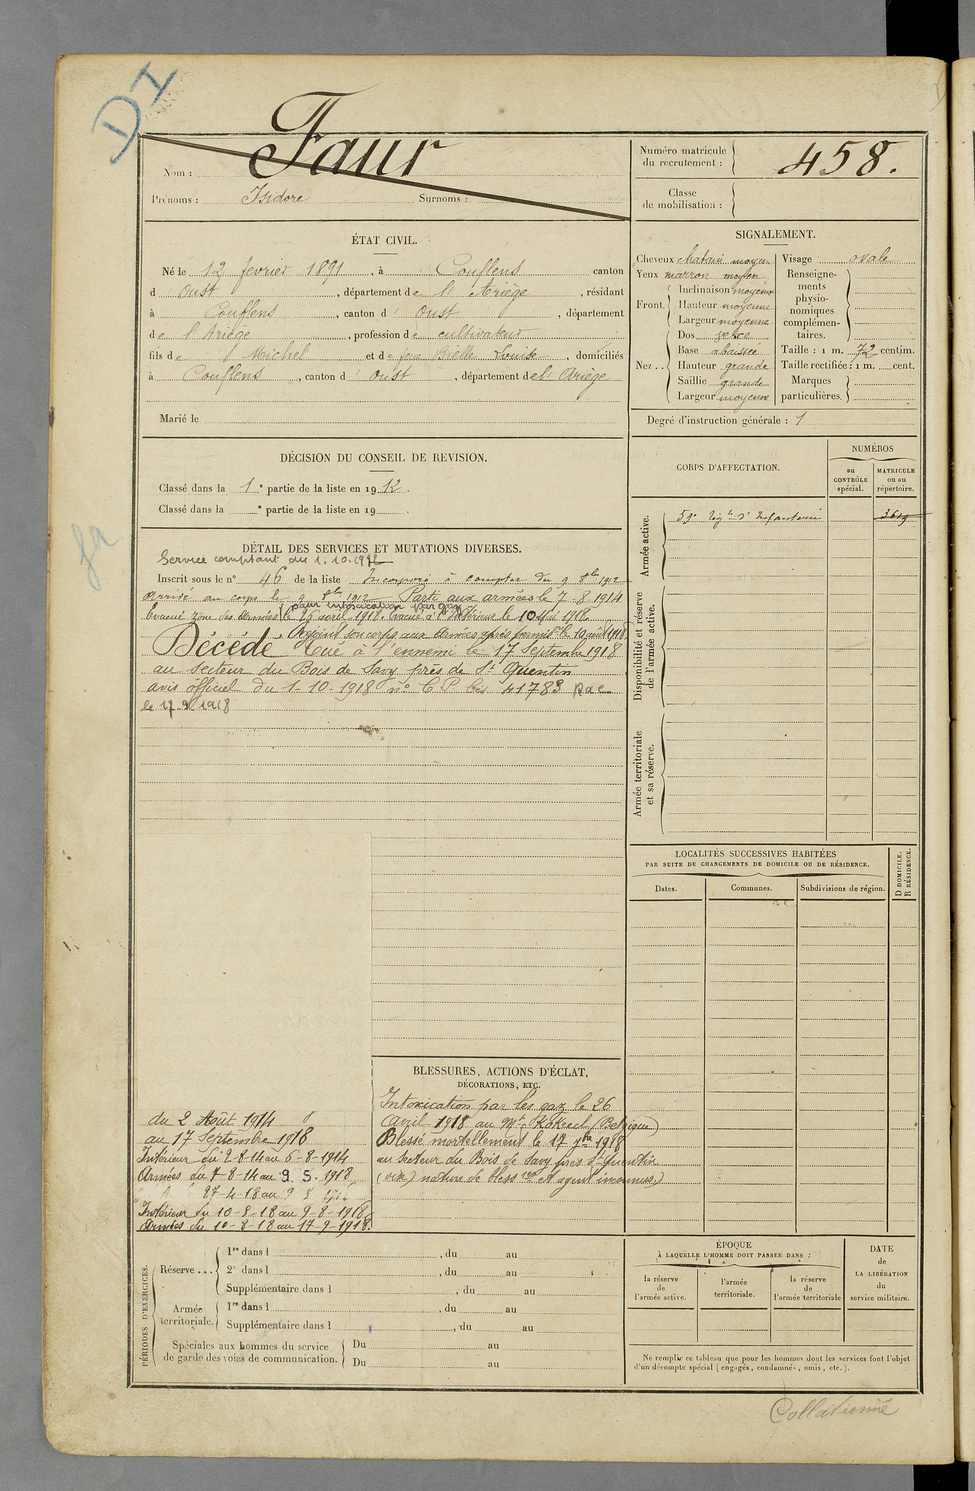 DI
Nom : Faur
Prénoms : Isidore Surnoms :
Numéro matricule du recrutement : 458.
Classe de mobilisation :
ÉTAT CIVIL.
Né le 12 février 1891, à Couflens canton
d Oust, département de l'Ariège, résidant
à Couflens, canton d'Oust, département
de l'Ariège, profession de cultivateur
fils de Michel et de feue Bielle Louise, domiciliés
à Couflens, canton d'Oust, département de l'Ariège
Marié le
SIGNALEMENT.
Cheveux chatain moyen
Yeux marron moyen
Front. Inclinaison moyenne
Hauteur moyenne
Largeur moyenne
Nez .. Dos
Base abaissée
Hauteur grande
Saillie grande
Largeur moyenne
Visage ovale
Renseignements physionomiques complémentaires.
Taille : 1 m. 72 centim.
Taille rectifiée : 1 m. cent.
Marques particulières.
Degré d'instruction générale : 1
DÉCISION DU CONSEIL DE REVISION.
Classé dans la 1e partie de la liste en 1912.
Classé dans la e partie de la liste en 19 .
CORPS D'AFFECTATION.
NUMÉROS
au CONTRÔLE spécial.
MATRICULE ou au répertoire.
Armée active.
59e Rég.t d'Infanterie
Disponibilité et réserve de l'armée active.
Armée territoriale et sa réserve.
DÉTAIL DES SERVICES ET MUTATIONS DIVERSES.
Service comptant du 1.10.1912
Inscrit sous le n° 46 de la liste Incorporé à compter du 9 8bre 1912
Arrivé au corps le 9 8bre 1912 Parti aux armées le 7-8-1914
pour intoxication par gaz
Evacué zone des armées le 26 avril 1918. évacué à l'Intérieur le 10 Mai 1918
Rejoint son corps aux armées après permis.on le 10 août 1918
Décédé Tué à l'ennemi le 17 Septembre 1918
au Secteur du Bois de Savy près de St Quentin
avis officiel du 1-10-1918 n° C P bis 41783
le 17.9.1918
LOCALITÉS SUCCESSIVES HABITÉES
PAR SUITE DE CHANGEMENTS DE DOMICILE OU DE RÉSIDENCE.
Dates. Communes. Subdivisions de région.
D DOMICILE. R RÉSIDENCE.
BLESSURES, ACTIONS D'ÉCLAT,
DÉCORATIONS, ETC.
Intoxication par les gaz le 26
Avril 1918 au Mt Kokereel (Belgique)
Blessé mortellement le 17 7bre 1918
au Secteur du Bois de Savy près St Quentin
nature de bless res et agent inconnus)
du 2 Août 1914
au 17 Septembre 1918
Intérieur du 2-8-14 au 6-8-1914
Armées du 7-8-14 au 9.5.1918
Intérieur du 10-8-18 au 9-8-1918
Armées du 10-8-18 au 17-9-1918.
PÉRIODES D'EXERCICES.
Réserve ... 1re dans l , du au
2e dans l , du au
Supplémentaire dans l , du au
Armée territoriale. 1re dans l , du au
Supplémentaire dans l , du au
Spéciales aux hommes du service de garde des voies de communication. Du au
Du au
ÉPOQUE
À LAQUELLE L'HOMME DOIT PASSER DANS :
la réserve de l'armée active.
l'armée territoriale.
la réserve de l'armée territoriale
DATE de LA LIBÉRATION du service militaire.
Ne remplir ce tableau que pour les hommes dont les services font l'objet
d'un décompte spécial (engagés, condamnés, omis, etc.).
Collationné